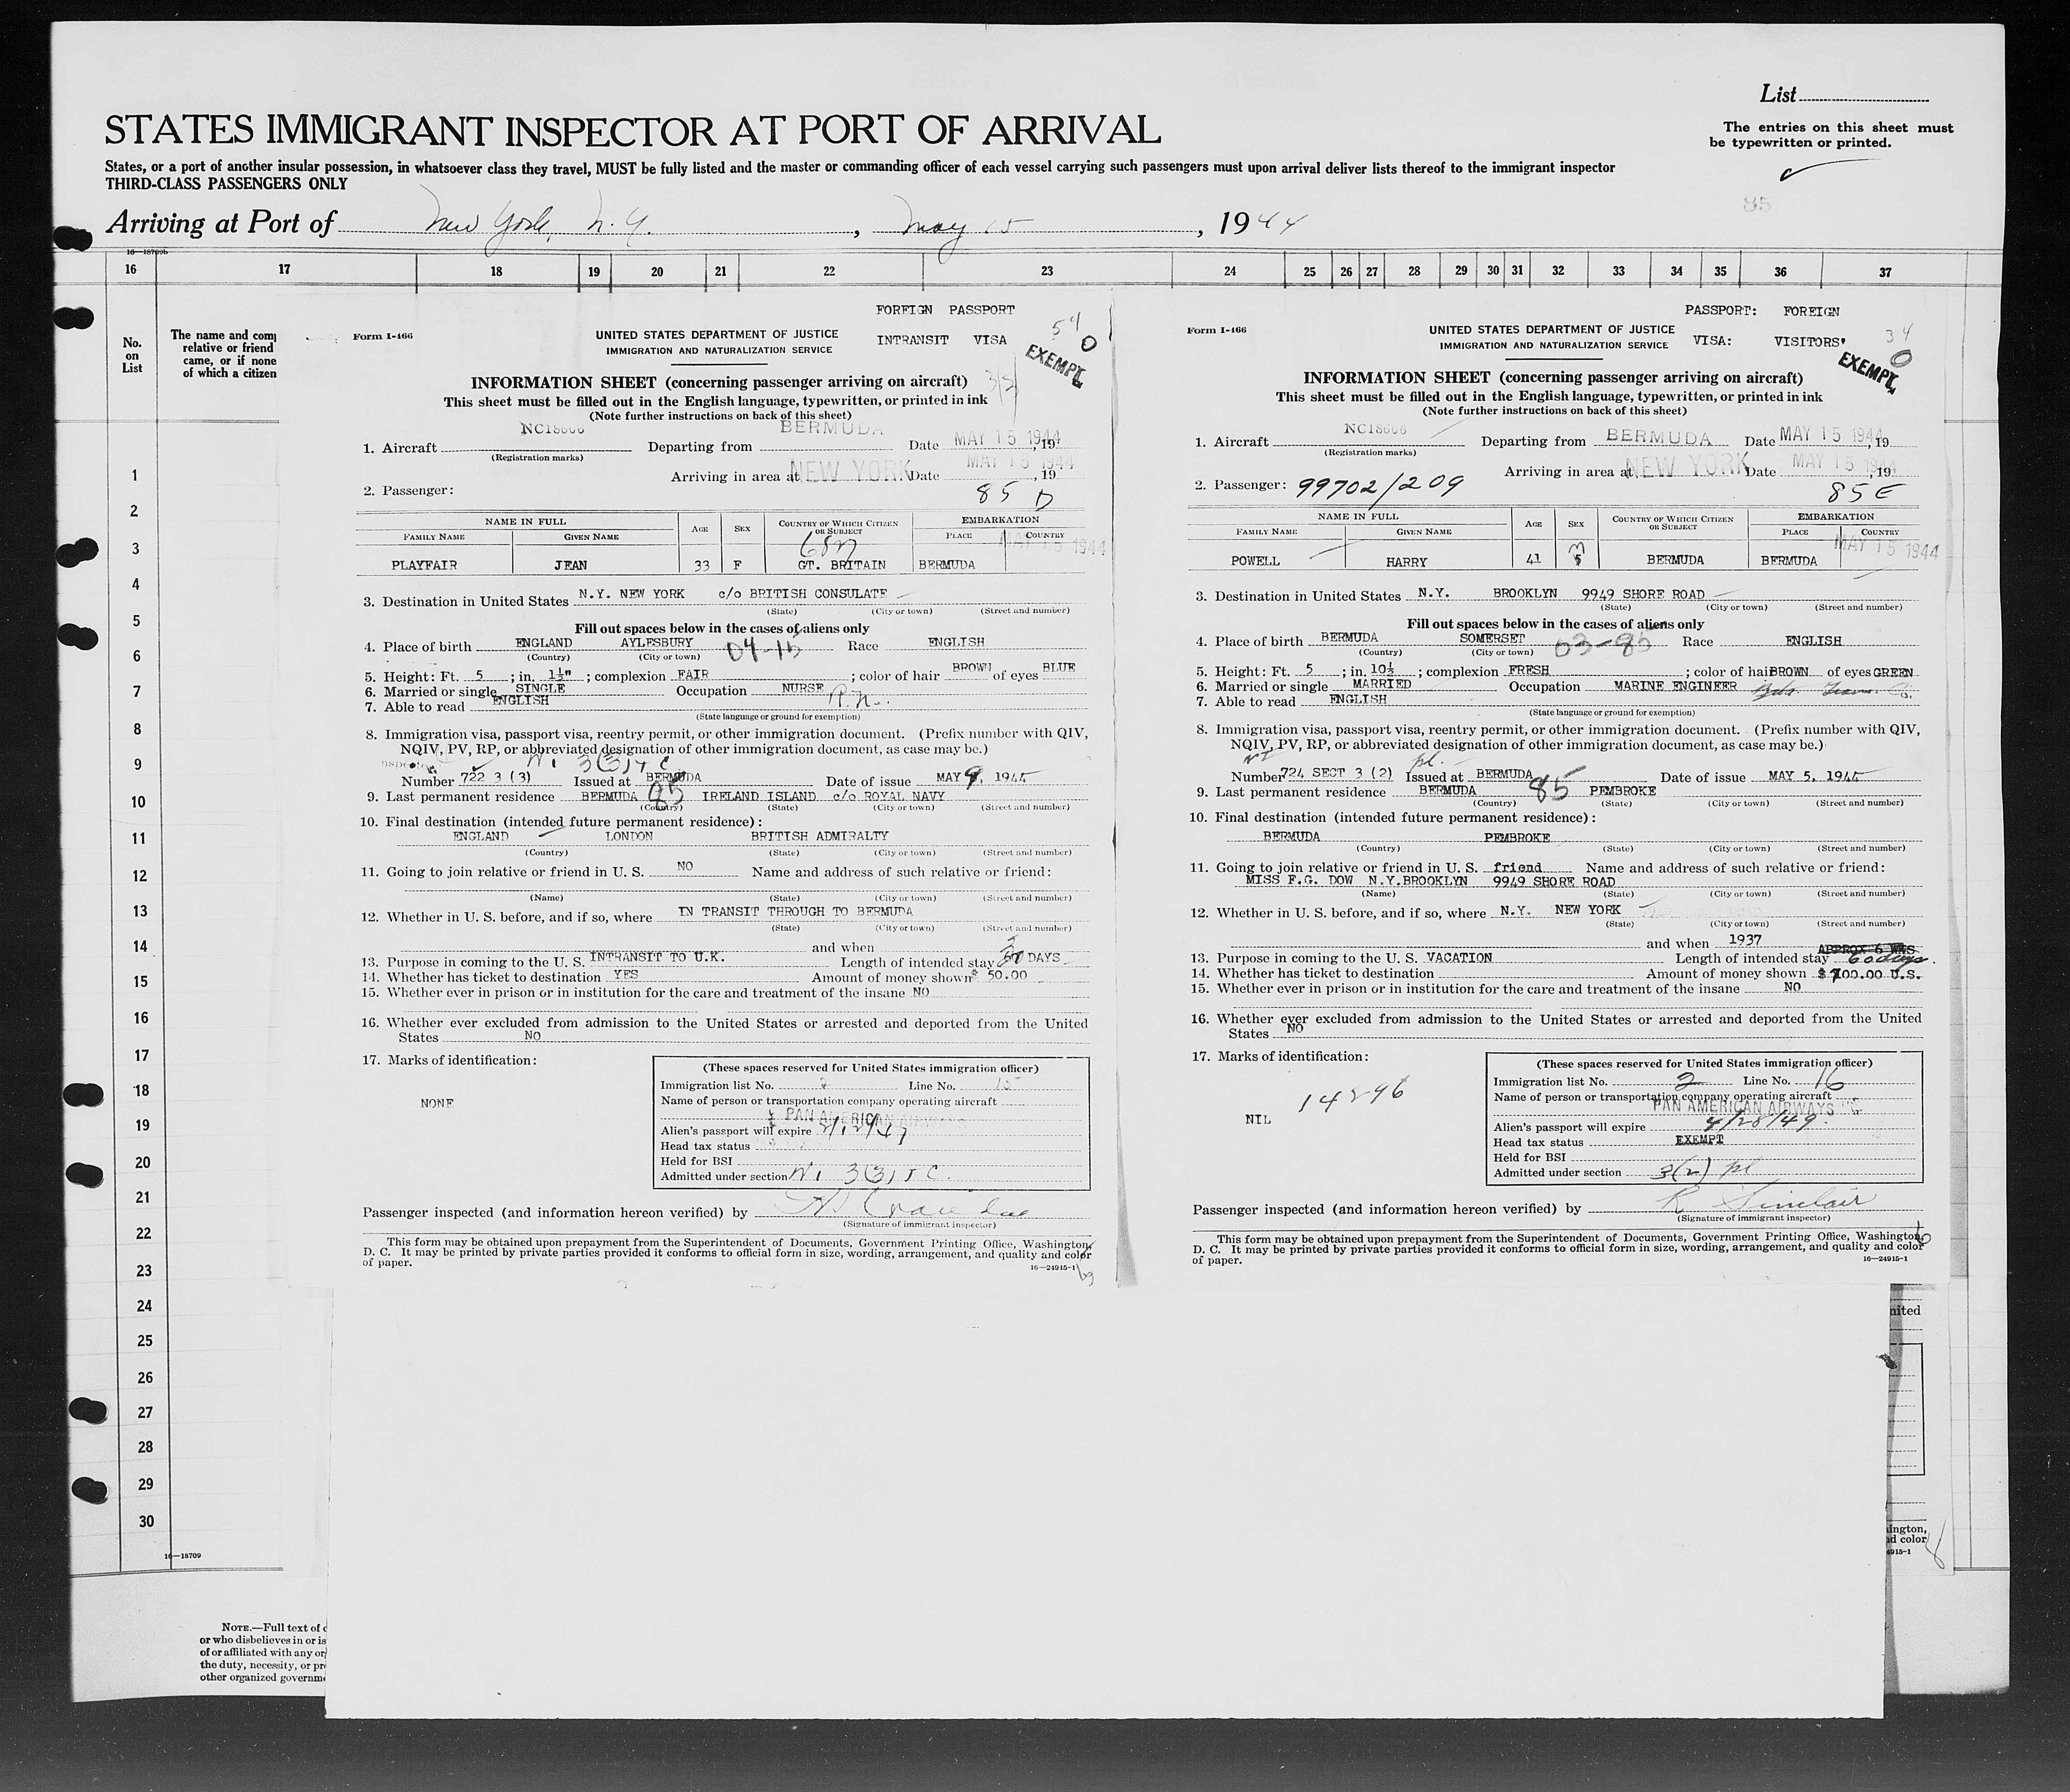 List
STATES IMMIGRANT INSPECTOR AT PORT OF ARRIVAL
The entries on this sheet must
be typewritten or printed.
States, or a port of another insular possession, in whatsoever class they travel, MUST be fully listed and the master or commanding officer of each vessel carrying such passengers must upon arrival deliver lists thereof to the immigrant inspector
THIRD-CLASS PASSENGERS ONLY
85
Arriving at Port of New York, N. Y. , May 15 , 1944
16—18709b
16 17 18 19 20 21 22 23 24 25 26 27 28 29 30 31 32 33 34 35 36 37
No.
on
List
The name and comp
relative or friend
came, or if none
of which a citizen
1
2
3
4
5
6
7
8
9
10
11
12
13
14
15
16
17
18
19
20
21
22
23
24
25
26
27
28
29
30
16—18709
NOTE.—Full text of
or who disbelieves in or is
of or affiliated with any or
the duty, necessity, or pr
other organized governme
FOREIGN PASSPORT
Form I-466
UNITED STATES DEPARTMENT OF JUSTICE
INTRANSIT VISA
54
0
IMMIGRATION AND NATURALIZATION SERVICE
EXEMPT
INFORMATION SHEET (concerning passenger arriving on aircraft)
This sheet must be filled out in the English language, typewritten, or printed in ink
(Note further instructions on back of this sheet)
1. Aircraft NC18606 Departing from BERMUDA Date MAY 15 1944, 19
(Registration marks)
Arriving in area at NEW YORK Date MAY 15 1944, 19
2. Passenger: 85 D
NAME IN FULL AGE SEX COUNTRY OF WHICH CITIZEN OR SUBJECT EMBARKATION
FAMILY NAME GIVEN NAME PLACE COUNTRY
MAY 15 1944
PLAYFAIR JEAN 33 F GT. BRITAIN BERMUDA
3. Destination in United States N.Y. NEW YORK c/o BRITISH CONSULATE
(State) (City or town) (Street and number)
Fill out spaces below in the cases of aliens only
4. Place of birth ENGLAND AYLESBURY 04-15 Race ENGLISH
(Country) (City or town)
5. Height: Ft. 5 ; in. 1½" ; complexion FAIR ; color of hair BROWN of eyes BLUE
6. Married or single SINGLE Occupation NURSE R.N.
7. Able to read ENGLISH
(State language or ground for exemption)
8. Immigration visa, passport visa, reentry permit, or other immigration document. (Prefix number with QIV,
NQIV, PV, RP, or abbreviated designation of other immigration document, as case may be.)
Number 722 3 (3) Issued at BERMUDA Date of issue MAY 9, 1944
9. Last permanent residence BERMUDA 85 IRELAND ISLAND c/o ROYAL NAVY
(Country) (State) (City or town) (Street and number)
10. Final destination (intended future permanent residence):
ENGLAND LONDON BRITISH ADMIRALTY
(Country) (State) (City or town) (Street and number)
11. Going to join relative or friend in U. S. NO Name and address of such relative or friend:
(Name) (State) (City or town) (Street and number)
12. Whether in U. S. before, and if so, where IN TRANSIT THROUGH TO BERMUDA
(State) (City or town) (Street and number)
and when
13. Purpose in coming to the U. S. INTRANSIT TO U.K. Length of intended stay DAYS
14. Whether has ticket to destination YES Amount of money shown $ 50.00
15. Whether ever in prison or in institution for the care and treatment of the insane NO
16. Whether ever excluded from admission to the United States or arrested and deported from the United
States NO
17. Marks of identification:
NONE
(These spaces reserved for United States immigration officer)
Immigration list No. 2 Line No. 15
Name of person or transportation company operating aircraft
PAN AMERICAN AIRWAYS
Alien's passport will expire
Head tax status
Held for BSI
Admitted under section 3(3)
Passenger inspected (and information hereon verified) by
(Signature of immigrant inspector)
This form may be obtained upon prepayment from the Superintendent of Documents, Government Printing Office, Washington,
D. C. It may be printed by private parties provided it conforms to official form in size, wording, arrangement, and quality and color
of paper.
16—24915-1
PASSPORT: FOREIGN
Form I-466
UNITED STATES DEPARTMENT OF JUSTICE
VISA: VISITORS'
34
0
IMMIGRATION AND NATURALIZATION SERVICE
EXEMPT
INFORMATION SHEET (concerning passenger arriving on aircraft)
This sheet must be filled out in the English language, typewritten, or printed in ink
(Note further instructions on back of this sheet)
1. Aircraft NC18606 Departing from BERMUDA Date MAY 15 1944, 19
(Registration marks)
Arriving in area at NEW YORK Date MAY 15 1944, 19
2. Passenger: 99702/209 85 E
NAME IN FULL AGE SEX COUNTRY OF WHICH CITIZEN OR SUBJECT EMBARKATION
FAMILY NAME GIVEN NAME PLACE COUNTRY
MAY 15 1944
POWELL HARRY 41 M BERMUDA BERMUDA
3. Destination in United States N.Y. BROOKLYN 9949 SHORE ROAD
(State) (City or town) (Street and number)
Fill out spaces below in the cases of aliens only
4. Place of birth BERMUDA SOMERSET 03-85 Race ENGLISH
(Country) (City or town)
5. Height: Ft. 5 ; in. 10½ ; complexion FRESH ; color of hair BROWN of eyes GREEN
6. Married or single MARRIED Occupation MARINE ENGINEER
7. Able to read ENGLISH
(State language or ground for exemption)
8. Immigration visa, passport visa, reentry permit, or other immigration document. (Prefix number with QIV,
NQIV, PV, RP, or abbreviated designation of other immigration document, as case may be.)
Number 724 SECT 3 (2) Issued at BERMUDA Date of issue MAY 5, 1944
9. Last permanent residence BERMUDA 85 PEMBROKE
(Country) (State) (City or town) (Street and number)
10. Final destination (intended future permanent residence):
BERMUDA PEMBROKE
(Country) (State) (City or town) (Street and number)
11. Going to join relative or friend in U. S. friend Name and address of such relative or friend:
MISS F.G. DOW N.Y.BROOKLYN 9949 SHORE ROAD
(Name) (State) (City or town) (Street and number)
12. Whether in U. S. before, and if so, where N.Y. NEW YORK
(State) (City or town) (Street and number)
and when 1937 APPROX 6 WKS
13. Purpose in coming to the U. S. VACATION Length of intended stay 60 days.
14. Whether has ticket to destination Amount of money shown $700.00 U.S.
15. Whether ever in prison or in institution for the care and treatment of the insane NO
16. Whether ever excluded from admission to the United States or arrested and deported from the United
States NO
17. Marks of identification:
14296
NIL
(These spaces reserved for United States immigration officer)
Immigration list No. 2 Line No. 16
Name of person or transportation company operating aircraft
PAN AMERICAN AIRWAYS
Alien's passport will expire 4/28/49.
Head tax status EXEMPT
Held for BSI
Admitted under section 3(2) pl
Passenger inspected (and information hereon verified) by R Sinclair
(Signature of immigrant inspector)
This form may be obtained upon prepayment from the Superintendent of Documents, Government Printing Office, Washington,
D. C. It may be printed by private parties provided it conforms to official form in size, wording, arrangement, and quality and color
of paper.
16—24915-1
nited
ington,
nd color
4915-1